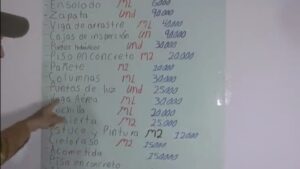 Ensolado ML 6000
Zapata Und 90.000
Viga de arrastre ML 40000
Cajas de inspección un 90.000
Und 30.000
Piso en concreto M2 20.000
Pañete M2 20.000
Columnas ML 30.000
Puntos de luz Und 25000
Viga Aerea ML 30.000
ML 20.000
M2 25.000
Estuco y Pintura M2 12000
M2 25000
Acometida 250000
Piso en concreto